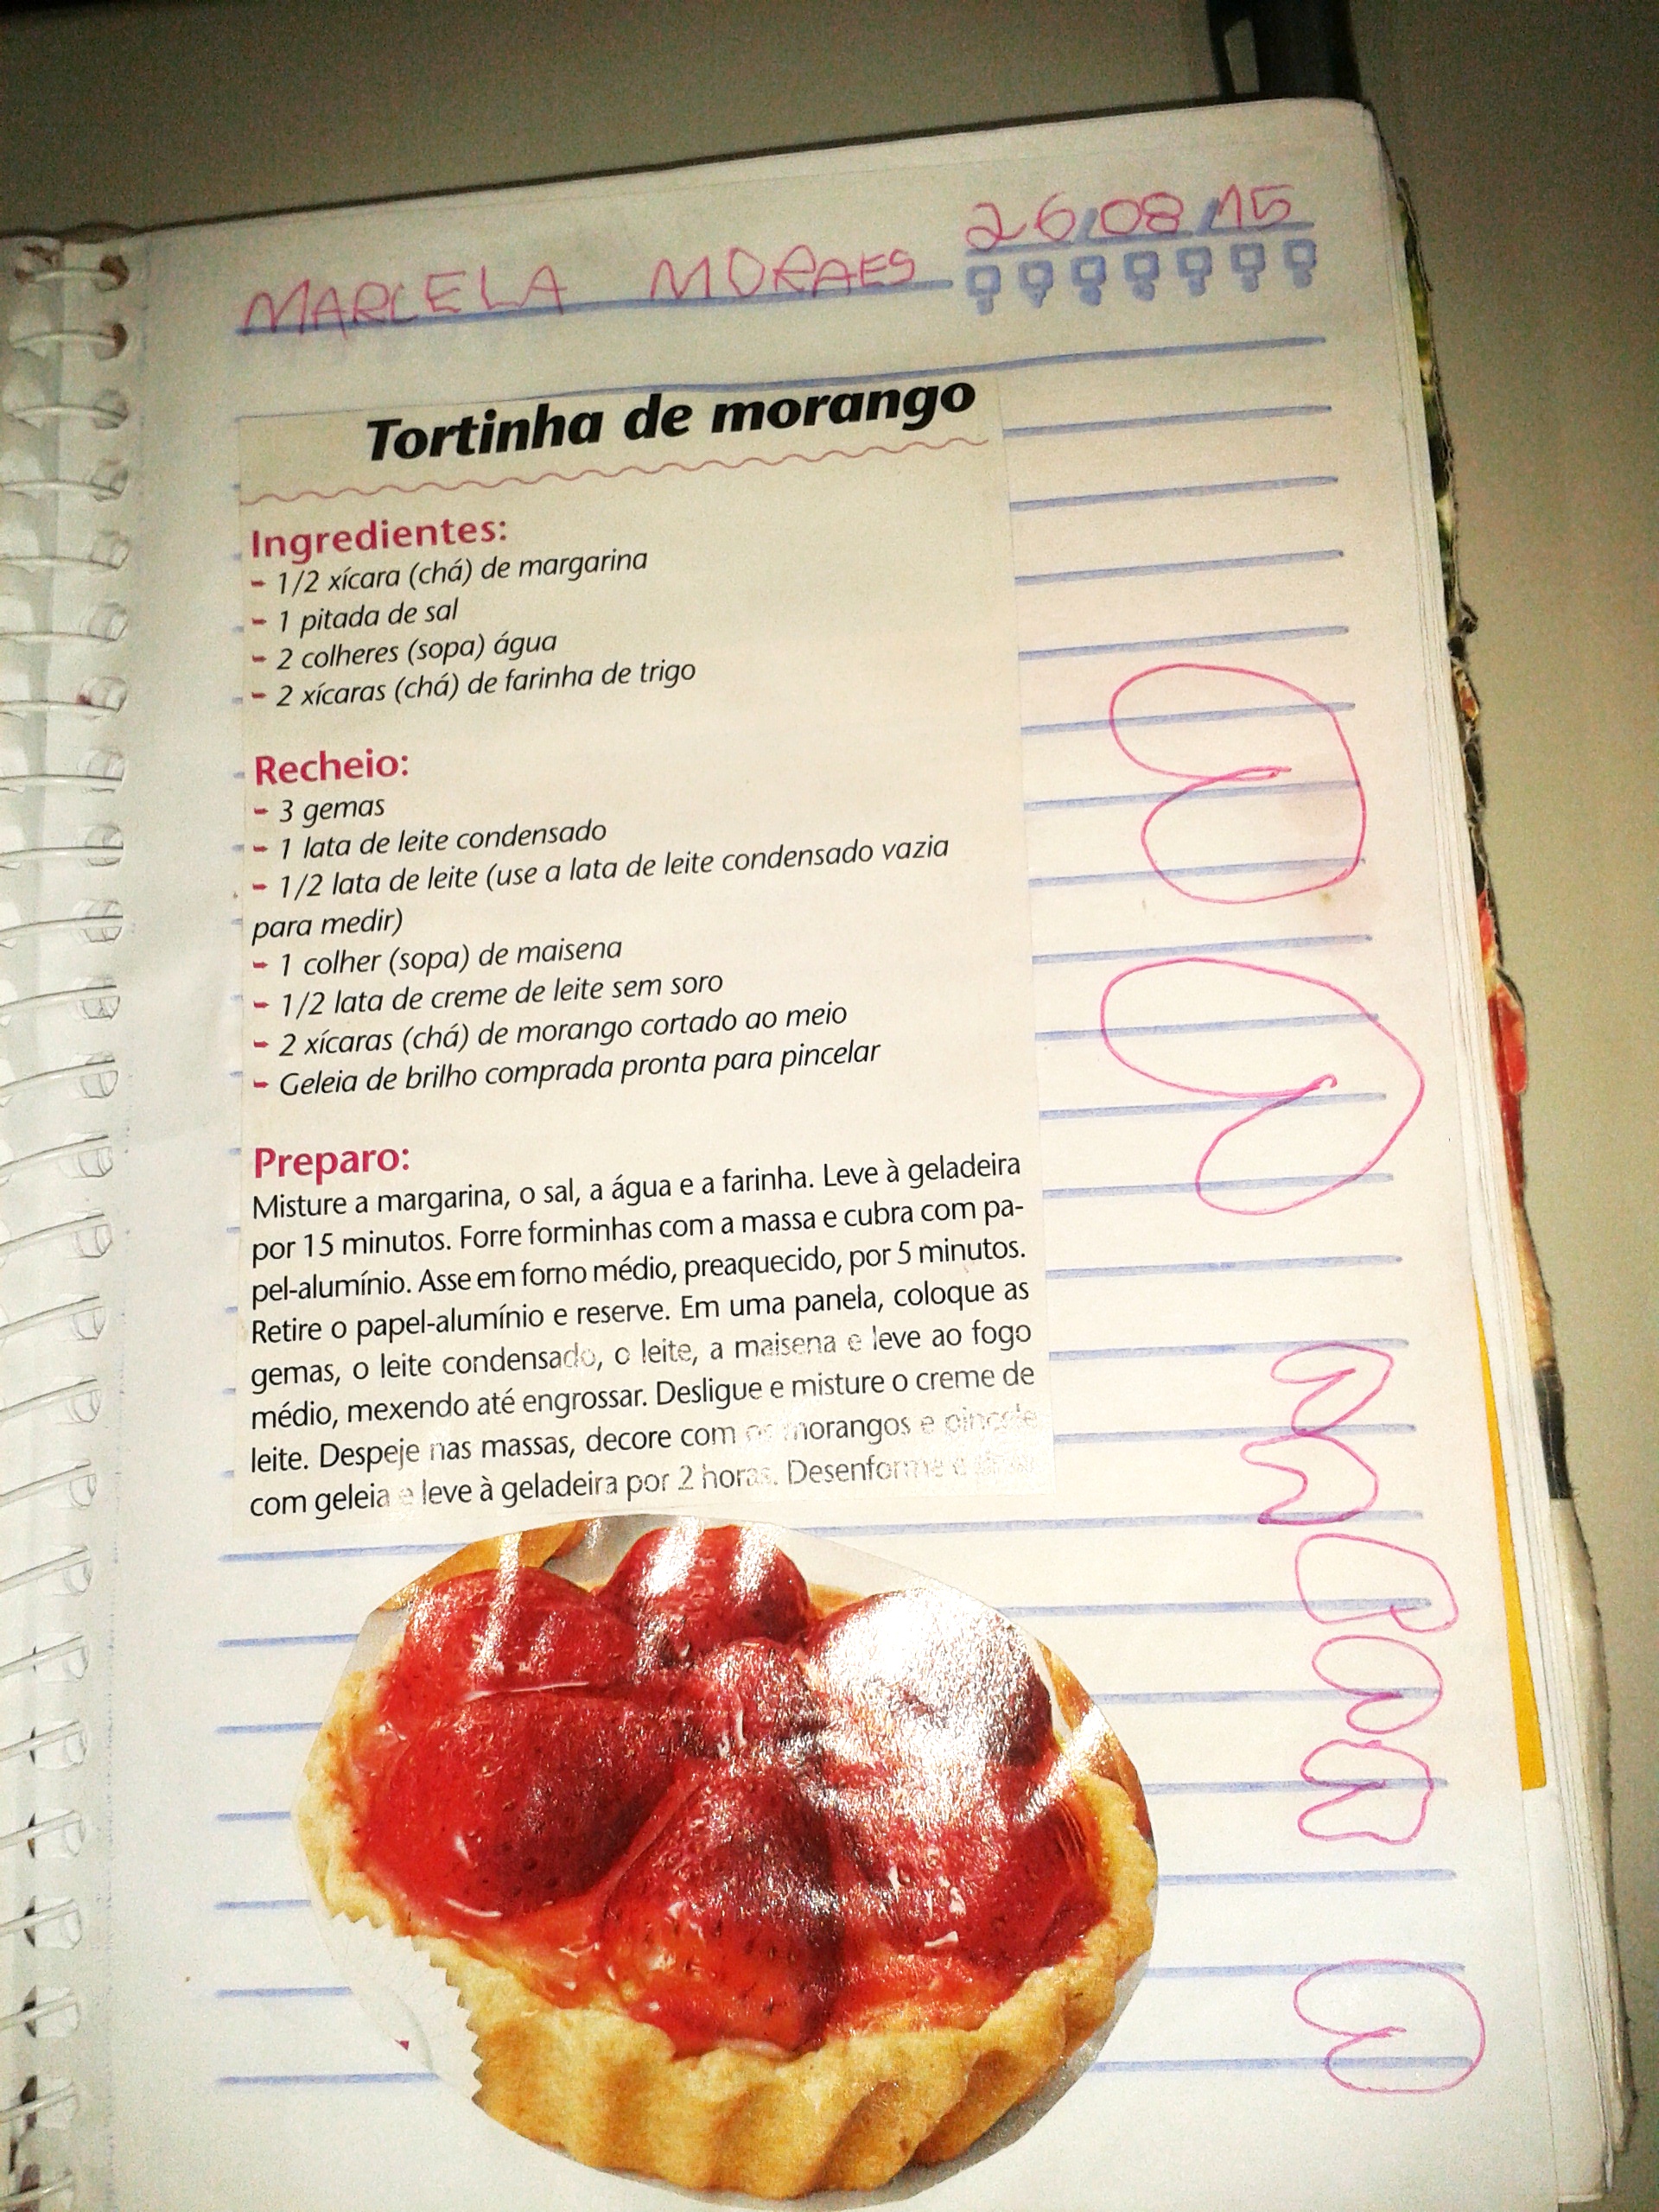 MARCELA MORAES 26/08/15
Tortinha de morango
Ingredientes:
- 1/2 xícara (chá) de margarina
- 1 pitada de sal
- 2 colheres (sopa) água
- 2 xícaras (chá) de farinha de trigo
Recheio:
- 3 gemas
- 1 lata de leite condensado
- 1/2 lata de leite (use a lata de leite condensado vazia
para medir)
- 1 colher (sopa) de maisena
- 1/2 lata de creme de leite sem soro
- 2 xícaras (chá) de morango cortado ao meio
- Geleia de brilho comprada pronta para pincelar
Preparo:
Misture a margarina, o sal, a água e a farinha. Leve à geladeira
por 15 minutos. Forre forminhas com a massa e cubra com pa-
pel-alumínio. Asse em forno médio, preaquecido, por 5 minutos.
Retire o papel-alumínio e reserve. Em uma panela, coloque as
gemas, o leite condensado, o leite, a maisena e leve ao fogo
médio, mexendo até engrossar. Desligue e misture o creme de
leite. Despeje nas massas, decore com os morangos e pincele
com geleia e leve à geladeira por 2 horas. Desenforme e